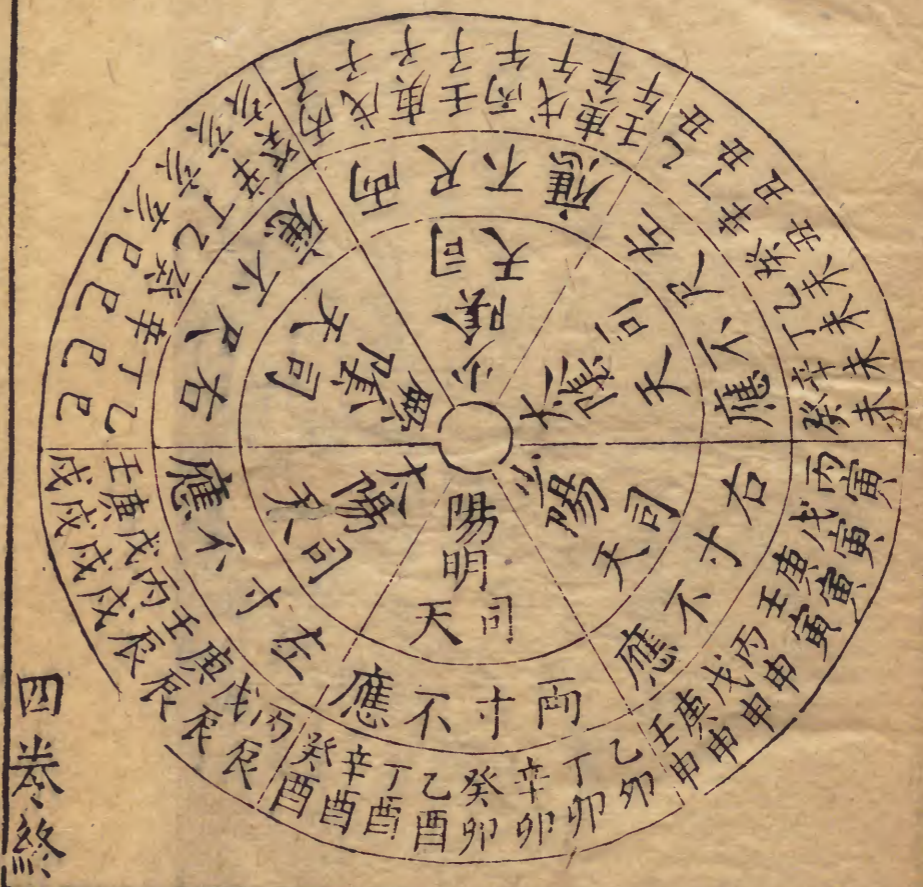 少陰司天
両尺不應
丙子 戊子 庚子 壬子 丙午 戊午 庚午 壬午
太陰司天
左尺不應
乙丑 丁丑 辛丑 癸丑 乙未 丁未 辛未 癸未
少陽司天
右寸不應
丙寅 戊寅 庚寅 壬寅 丙申 戊申 庚申 壬申
陽明司天
両寸不應
乙卯 丁卯 辛卯 癸卯 乙酉 丁酉 辛酉 癸酉
太陽司天
左寸不應
丙辰 戊辰 庚辰 壬辰 丙戌 戊戌 庚戌 壬戌
厥陰司天
右尺不應
乙巳 丁巳 辛巳 癸巳 乙亥 丁亥 辛亥 癸亥
四卷終